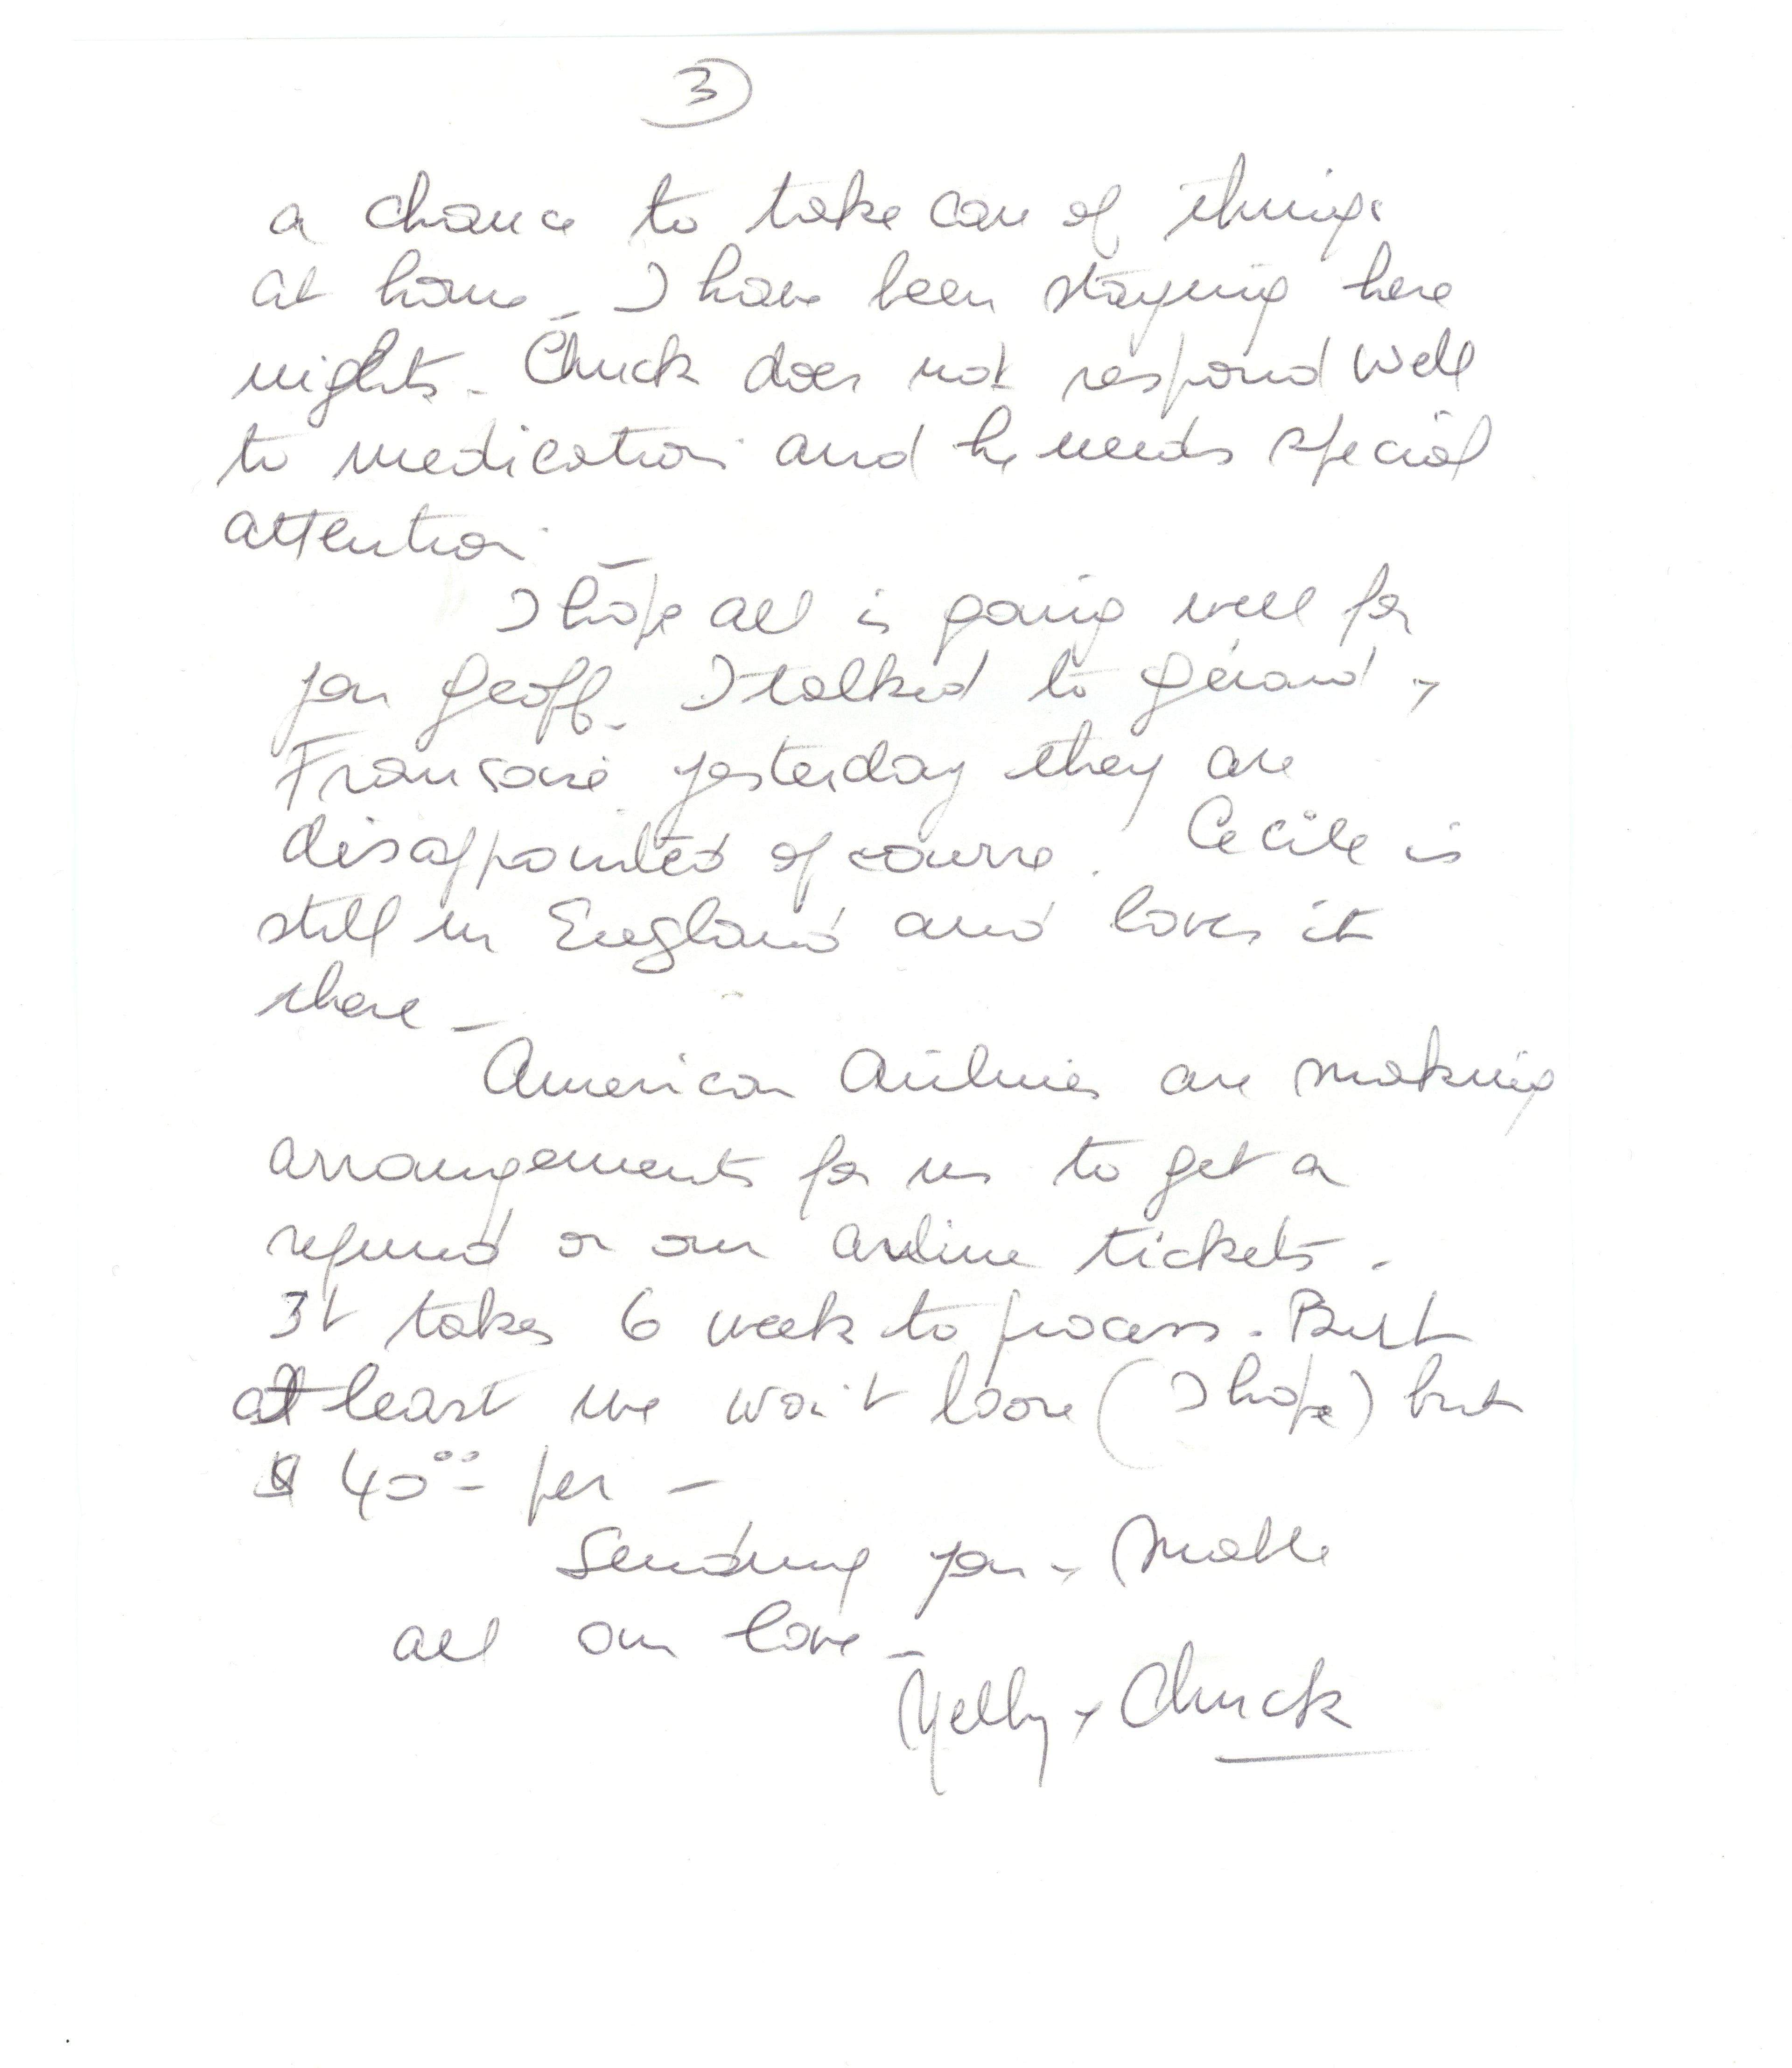 3
a chance to take care of things
at home. I have been staying here
nights. Chuck does not respond well
to medication and he needs special
attention.
I hope all is going well for
you Geoff. I talked to Gérard &
Françoise yesterday they are
disappointed of course. Cecile is
still in England and loves it
there -
American Airlines are making
arrangements for us to get a
refund on our airline tickets.
It takes 6 week to process. But
at least we won't loose (I hope) but
$ 40.00 per -
Sending you &
all our love -
Nelly & Chuck